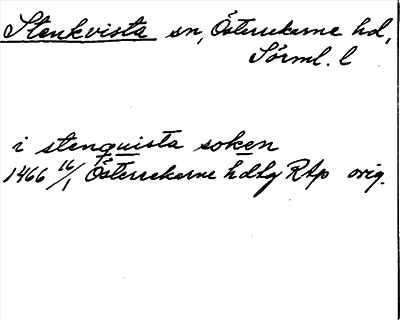 Stenkvista sn, Österrekarne hd,
Sörml. l
i stenquista soken
1466 16/1 Österrekarne hdtg RAp orig.